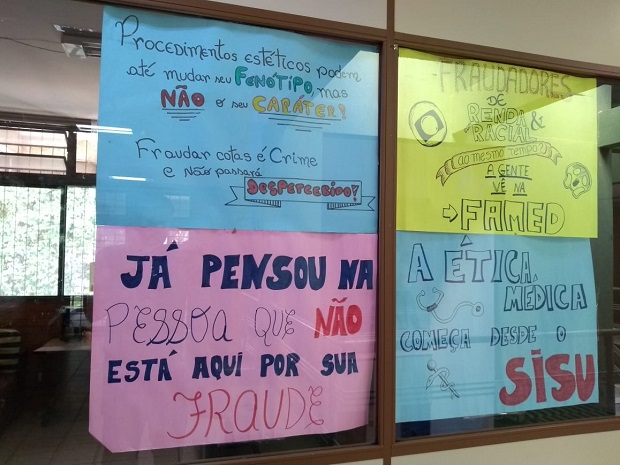 Procedimentos estéticos podem
até mudar seu FENÓTIPO, mas
NÃO o seu CARÁTER!
Fraudar cotas é Crime
e Não passará
DESPERCEBIDO!
FRAUDADORES
DE
RENDA &
RACIAL
(ao mesmo tempo?)
A GENTE
VÊ NA
→FAMED
JÁ PENSOU NA
PESSOA QUE NÃO
ESTÁ AQUI POR SUA
FRAUDE
A ÉTICA
MÉDICA
COMEÇA DESDE O
SISU